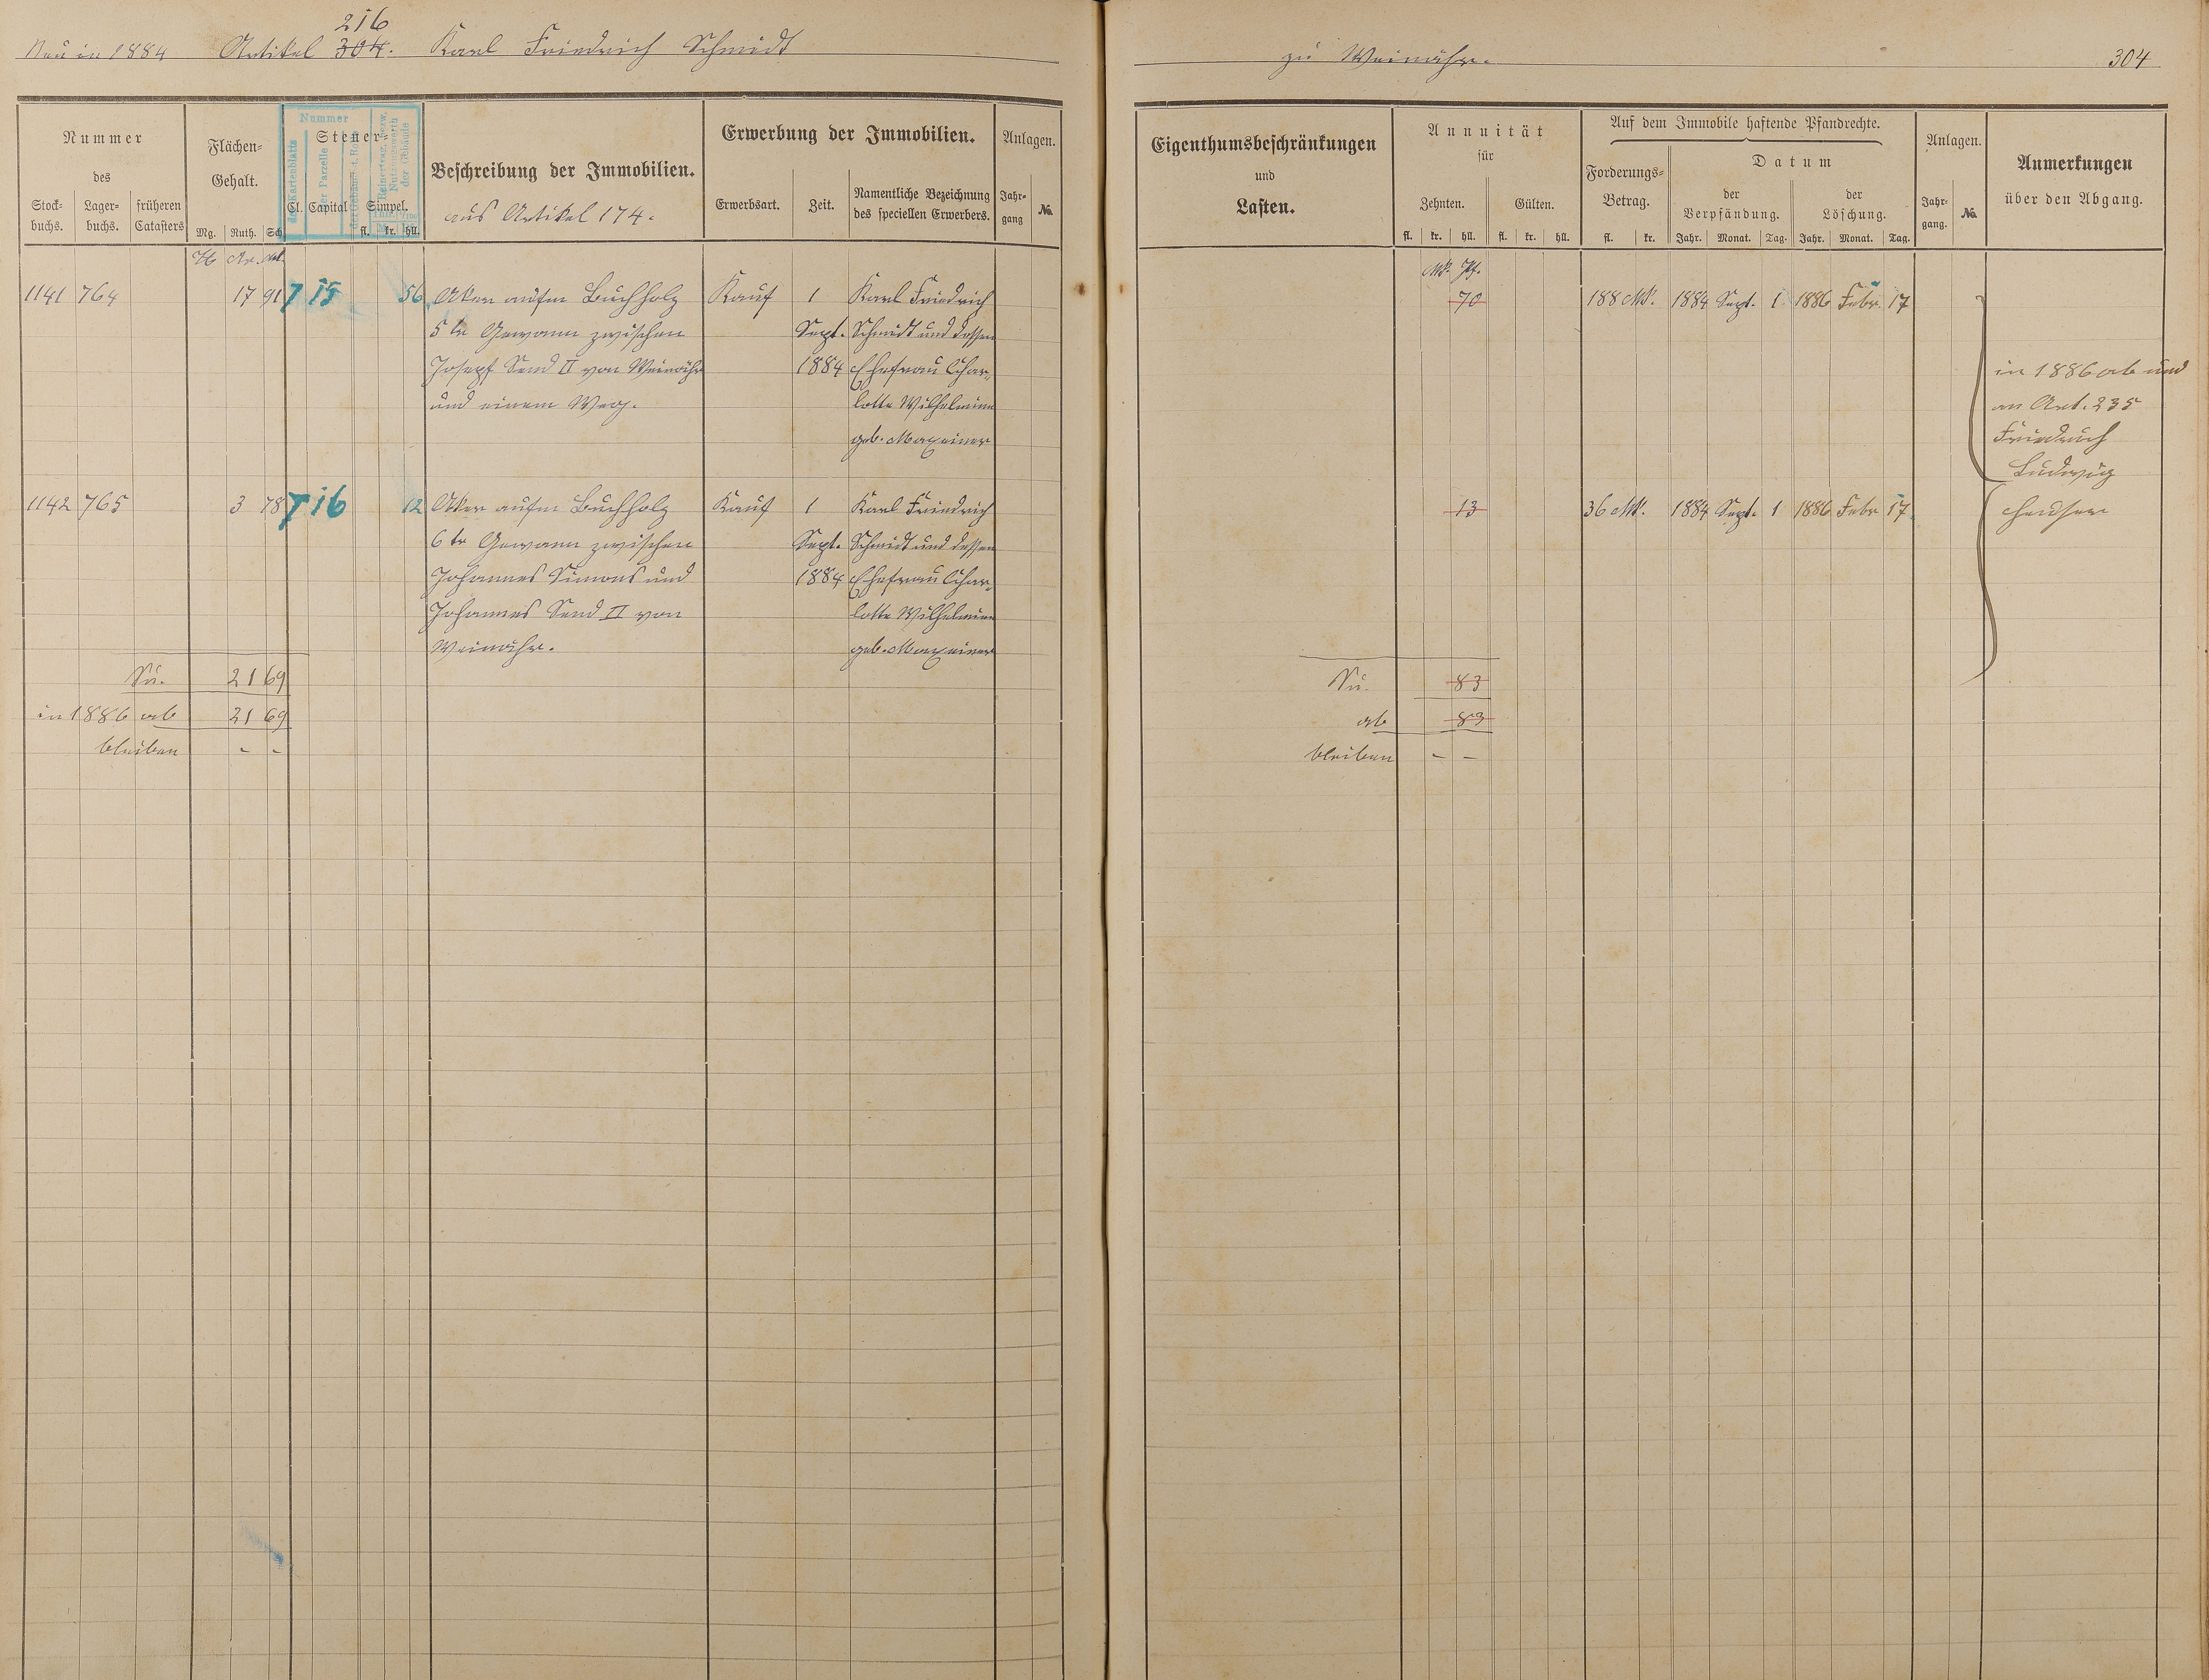 216
Neu in 1884 Artikel 304. Karl Friedrich Schmidt
zu Weinähr. 304
Nummer
des
Stock-
buchs.
Lager-
buchs.
früheren
Catasters
Flächen-
Gehalt.
Mg. Ruth. Sch.
Nummer
Steuer-
Cl. Capital Simpel.
fl. kr. hll.
Beschreibung der Immobilien.
aus Artikel 174.
Erwerbung der Immobilien.
Erwerbsart. Zeit.
Namentliche Bezeichnung
des speciellen Erwerbers.
Anlagen.
Jahr-
gang
No.
Eigenthumsbeschränkungen
und
Lasten.
Annuität
für
Zehnten. Gülten.
fl. kr. hll. fl. kr. hll.
Auf dem Immobile haftende Pfandrechte.
Forderungs-
Betrag.
fl. kr.
Datum
der
Verpfändung.
der
Löschung.
Jahr. Monat. Tag. Jahr. Monat. Tag.
Anlagen.
Jahr-
gang.
No.
Anmerkungen
über den Abgang.
Ar.
1141 764 17 91 7 15 56 Aker aufm Buchholz Kauf 1 Karl Friedrich
5te Gewann zwischen Sept. Schmidt und dessen
Josepf Send II von Weinähr 1884 Ehefrau Char-
und einem Weg. lotte Wilhelmine
geb. Maxeiner
1142 765 3 78 7 16 12 Aker aufm Buchholz Kauf 1 Karl Friedrich
6te Gewann zwischen Sept. Schmidt und dessen
Johannes Simons und 1884 Ehefrau Char-
Johannes Send II von lotte Wilhelmine
Weinähr. geb. Maxeiner
Su. 21 69
in 1886 ab 21 69
bleiben - -
Mk. Pf.
70 188 Mk. 1884 Sept. 1 1886 Febr. 17
in 1886 ab und
an Art. 235
Friedrich
Ludwig
13 36 Mk. 1884 Sept. 1 1886 Febr 17
Su. 83
ab 83
bleiben - -